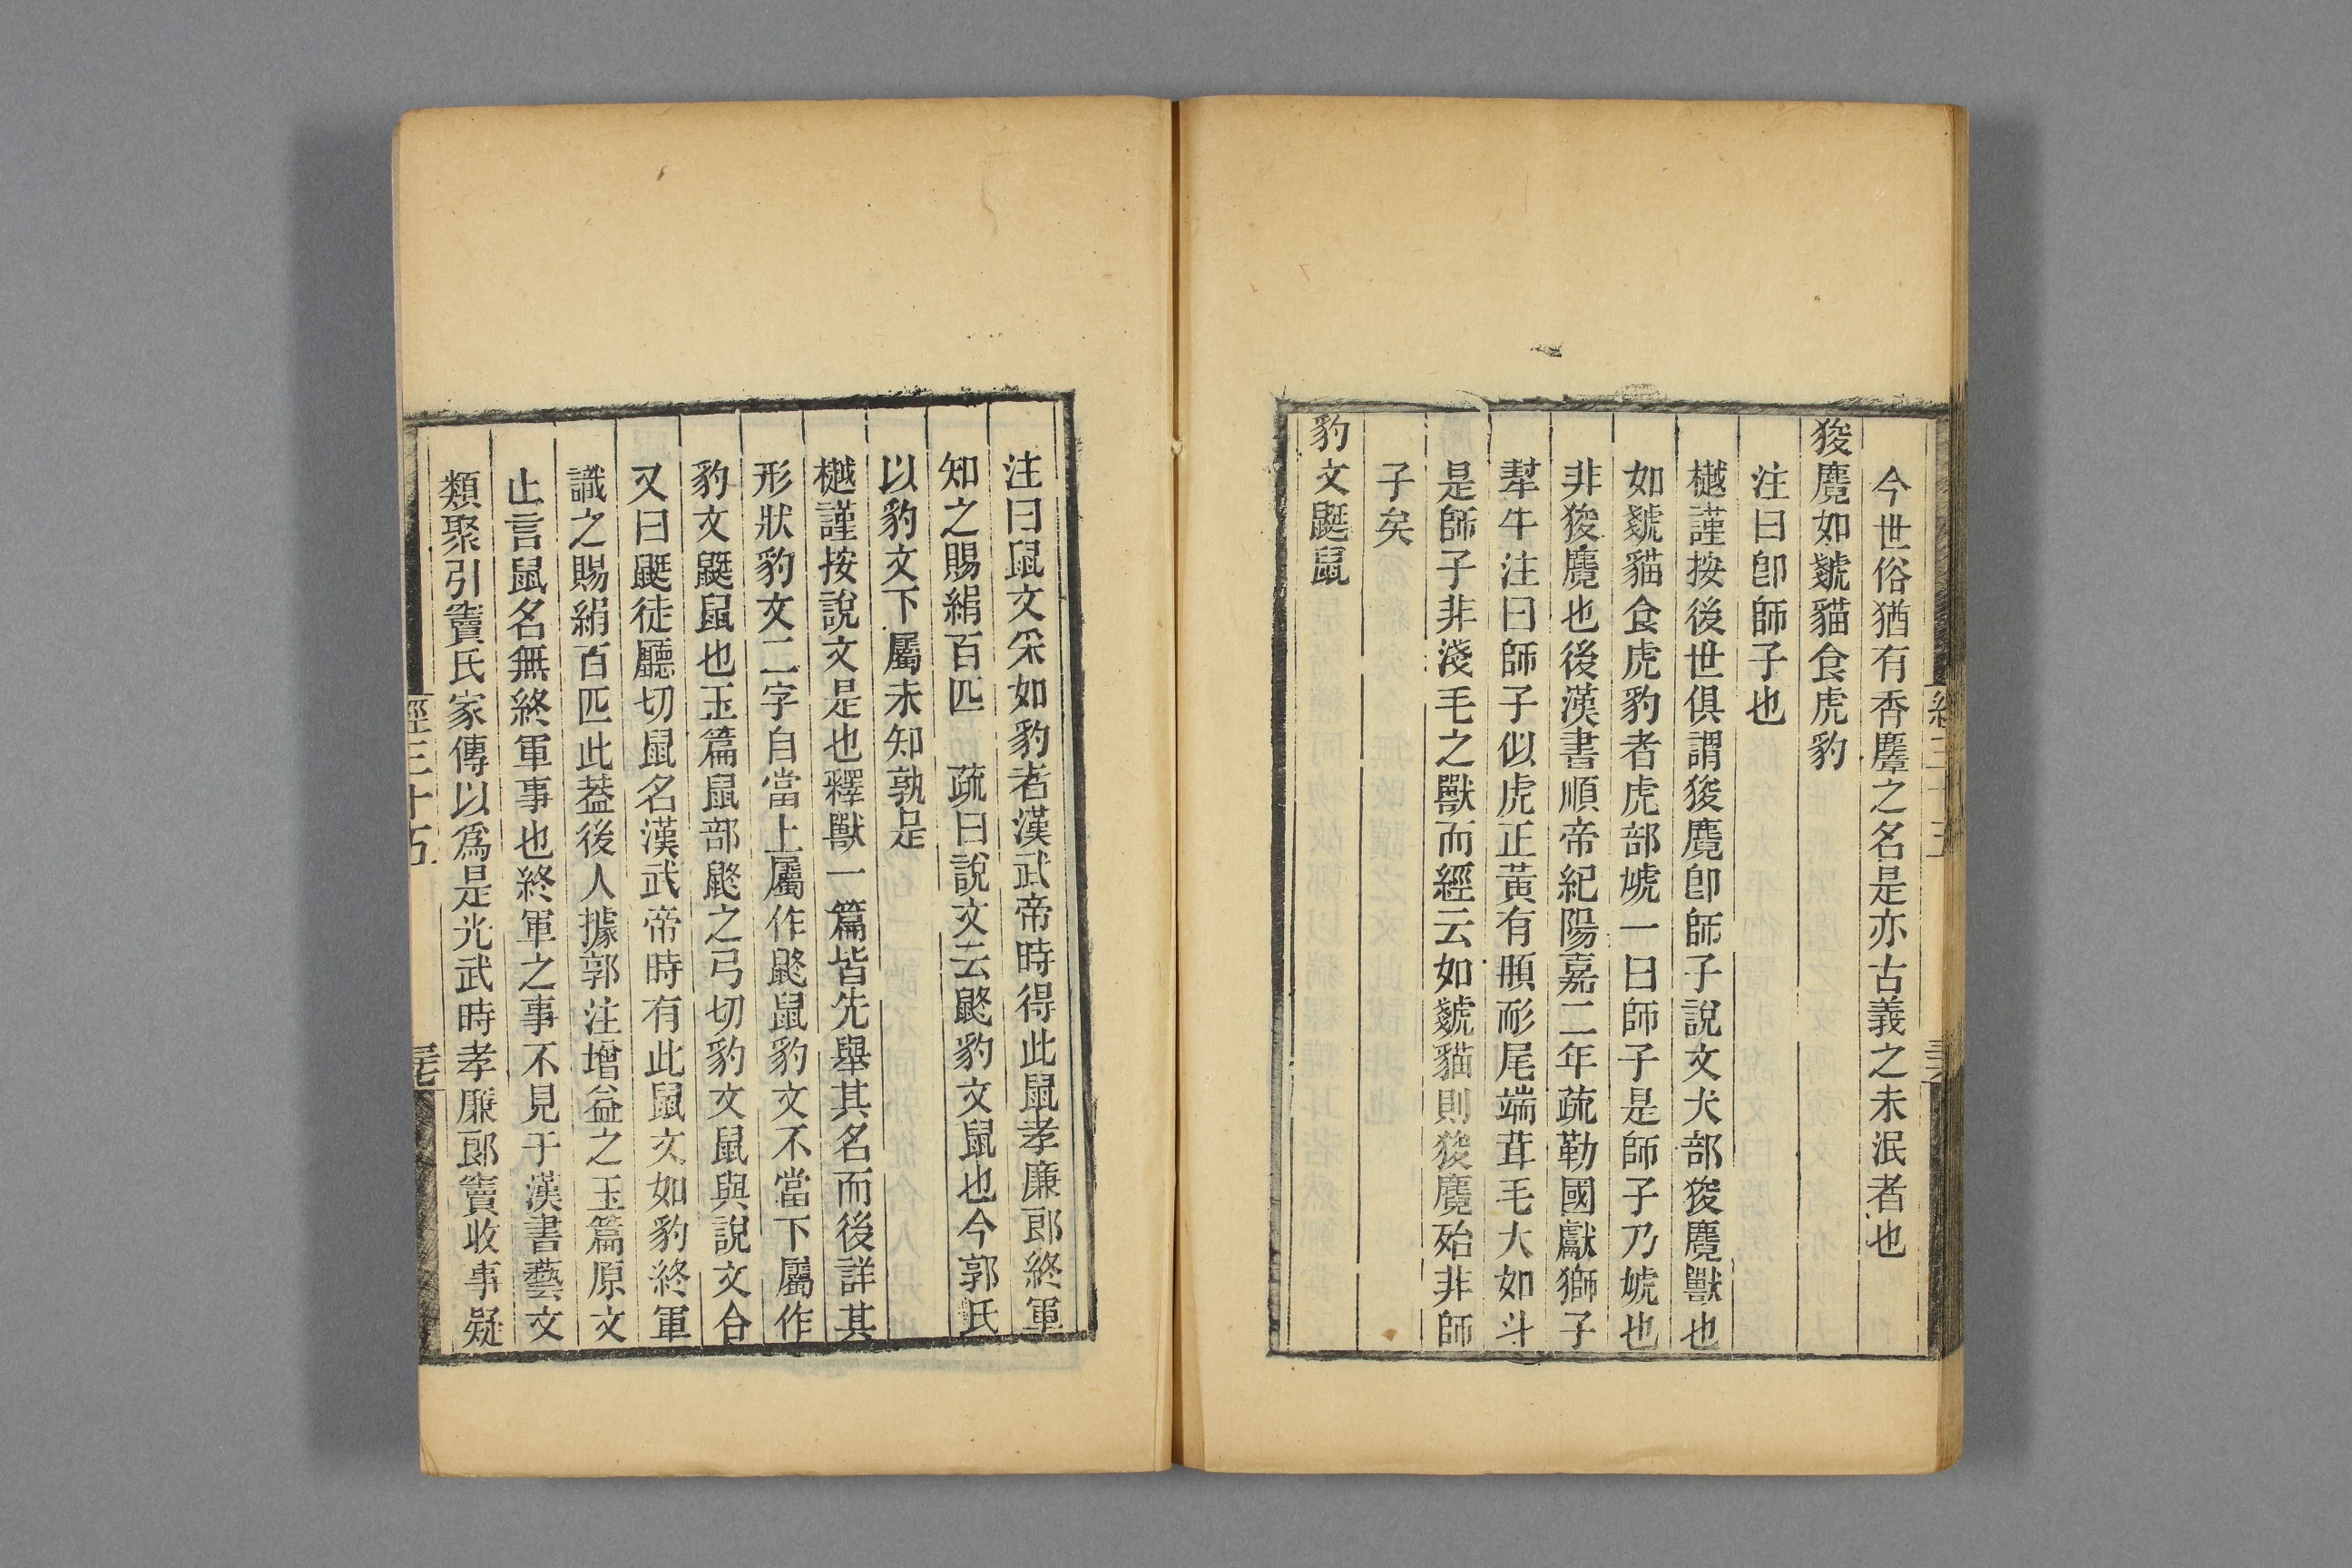 今世俗猶有香麞之名是亦古義之未泯者也
狻麑如虦貓食虎豹
注曰卽師子也
樾謹按後世俱謂狻麑卽師子說文犬部狻麑獸也
如虦貓食虎豹者虎部虓一曰師子是師子乃虓也
非狻麑也後漢書順帝紀陽嘉二年疏勒國獻獅子
犎牛注曰師子似虎正黃有髯耏尾端茸毛大如斗
是師子非淺毛之獸而經云如虦貓則狻麑殆非師
子矣
豹文鼮鼠
注曰鼠文采如豹者漢武帝時得此鼠孝廉郎終軍
知之賜絹百匹 疏曰說文云鼨豹文鼠也今郭氏
以豹文下屬未知孰是
樾謹按說文是也釋獸一篇皆先舉其名而後詳其
形狀豹文二字自當上屬作鼨鼠豹文不當下屬作
豹文鼮鼠也玉篇鼠部鼨之弓切豹文鼠與說文合
又曰鼮徒廳切鼠名漢武帝時有此鼠文如豹終軍
識之賜絹百匹此葢後人據郭注增益之玉篇原文
止言鼠名無終軍事也終軍之事不見于漢書藝文
類聚引竇氏家傳以爲是光武時孝廉郎竇收事疑
經三十五